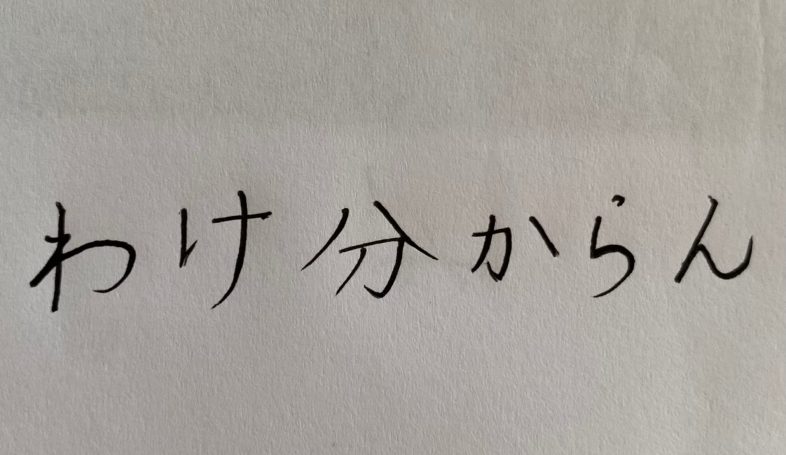 わけ分からん